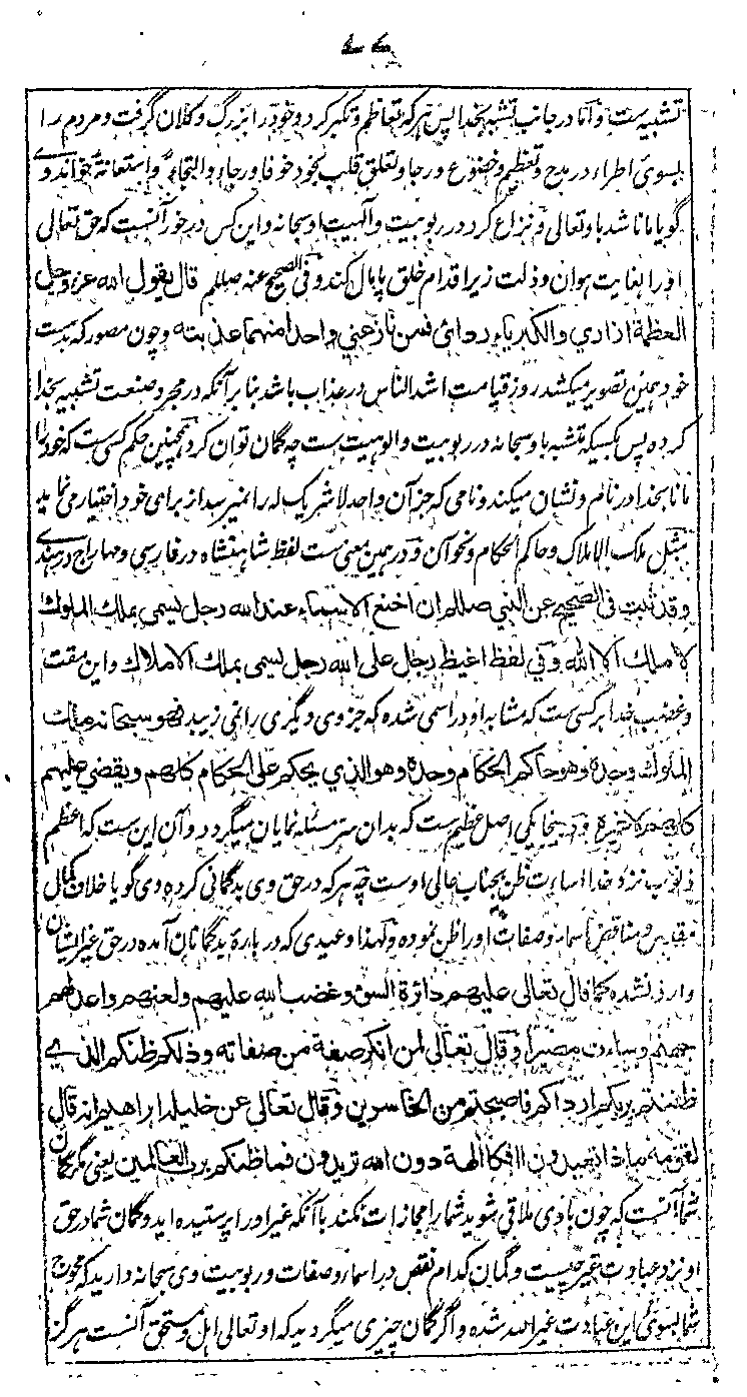 تشبیه ست و اما در جانب تشبه بخدا پس هر که تعاظم و تکبر کرد و خود را بزرگ و کلان گرفت و مردم را
بسوی اطراء در مدح و تعظیم و خضوع و رجا و تعلق قلب بخود خوفا و رجاء و التجاء و استعانة خواند وے
گویا مانا شد باو تعالی و نزاع کرد در ربوبیت و الٰهیت او سبحانه و این کس در خور آنست که حق تعالی
او را بغایت هوان و ذلت زیر اقدام خلق پامال کند و فی الصحیح عنه صللم قال یقول الله عز و جل
العظمة ازاری والکبریاء ردائی فمن نازعنی واحدا منهما عذبته و چون مصور که بدست
خود همین تصویر میکشد روز قیامت اشد الناس در عذاب باشد بنا بر آنکه در مجرد صنعت تشبیه بخدا
کرده پس بکسیکه متشبه باو سبحانه در ربوبیت و الوهیت ست چه گمان توان کرد همچنین حکم کسی ست که خود را
مانا بخدا در نام و نشان میکند و نامی که جز آن واحد لا شریک له را نمیرسد از برای خود اختیار می نماید
مثل ملک الاملاک و حاکم الحکام و نحو آن و در همین معنی ست لفظ شاهنشاه در فارسی و مهاراج در هندے
وقد ثبت فی الصحیح عن النبی صللم ان اخنع الاسماء عند الله رجل یسمی بملک الملوک
لا ملک الا الله وفی لفظ اغیظ رجل علی الله رجل یسمی بملک الاملاک و این مقت
و غضب خدا بر کسی ست که مشابه او در اسمی شده که جز وی دیگری را نمی زیبد فهو سبحانه ملک
الملوک وحده وهو حاکم الحکام وحده وهو الذی یحکم علی الحکام کلهم ویقضی علیهم
کلهم لا غیره و در اینجا یکی اصل عظیم ست که بدان سر مسئله نمایان میگردد و آن این ست که اعظم
ذنوب نزد خدا اساءت ظن بجناب عالی اوست چه هر که در حق وی بدگمانی کرده وی گویا خلاف کمال
مقدس و مناقض اسماء و صفات او را ظن نموده و لهذا وعیدی که در بارهٔ بدگمانان آمده در حق غیر ایشان
وارد نشده کما قال تعالی علیهم دائرة السوء وغضب الله علیهم ولعنهم واعد لهم
جهنم وساءت مصیرا وقال تعالی لمن انکر صفة من صفاته وذلکم ظنکم الذے
ظننتم بربکم ارداکم فاصبحتم من الخاسرین وقال تعالی عن خلیله ابراهیم انه قال
لقومه ماذا تعبدون اافکا الهة دون الله تریدون فما ظنکم برب العالمین یعنی گمان
شما آنست که چون باوی ملاقی شوید شما را مجازات نکند با آنکه غیر او را پرستیده اید و گمان شما در حق
او نزد عبادت غیر چیست و گمان کدام نقص در اسماء و صفات و ربوبیت وی سبحانه دارید که محوج
شما بسوی این عبادت غیر الله شده و اگر گمان چیزی میگردید که او تعالی اهل و مستحق آنست هرگز